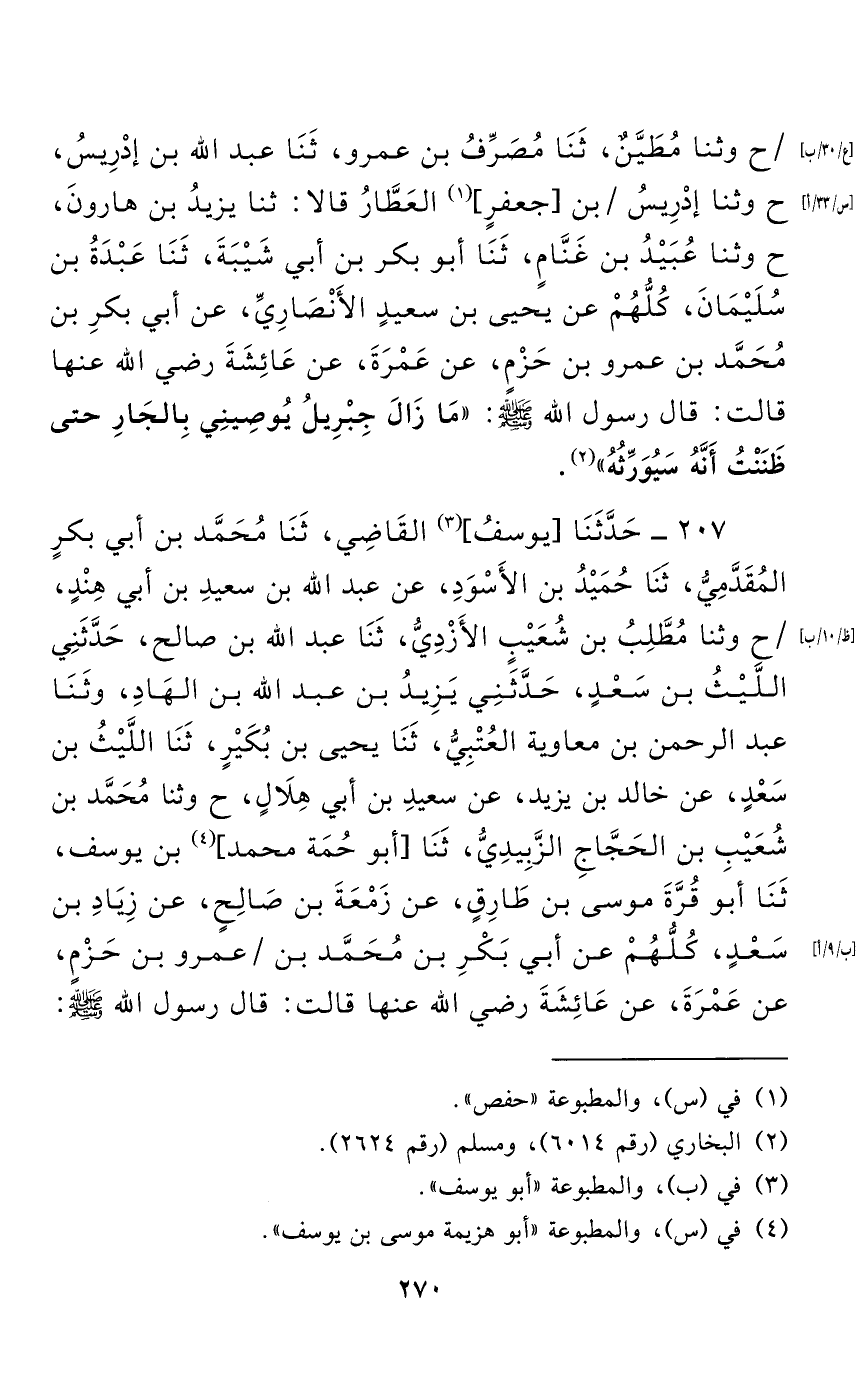 [ع/٣٠/ب] /ح وثنا مُطَيَّنٌ، ثَنَا مُصَرِّفُ بن عمرو، ثَنَا عبد الله بن إدْرِيسُ،
[س/٣٣/أ] ح وثنا إدْرِيسُ /بن [جعفرٍ](١) العَطَّارُ قالا: ثنا يزيدُ بن هارونَ،
ح وثنا عُبَيْدُ بن غَنَّامٍ، ثَنَا أبو بكر بن أبي شَيْبَةَ، ثَنَا عَبْدَةُ بن
سُلَيْمَانَ، كُلُّهُمْ عن يحيى بن سعيدٍ الأَنْصَارِيِّ، عن أبي بكرِ بن
مُحَمَّد بن عمرو بن حَزْمٍ، عن عَمْرَةَ، عن عَائِشَةَ رضي الله عنها
قالت: قال رسول الله ﷺ: «مَا زَالَ جِبْرِيلُ يُوصِينِي بِالجَارِ حتى
ظَنَنْتُ أَنَّهُ سَيُوَرِّثُهُ»(٢).
٢٠٧ ـ حَدَّثَنَا [يوسفُ](٣) القَاضِي، ثَنَا مُحَمَّد بن أبي بكرٍ
المُقَدَّمِيُّ، ثَنَا حُمَيْدُ بن الأَسْوَدِ، عن عبد الله بن سعيدِ بن أبي هِنْدٍ،
[ظ/١٠/ب] /ح وثنا مُطَّلِبُ بن شُعَيْبٍ الأَزْدِيُّ، ثَنَا عبد الله بن صالح، حَدَّثَنِي
اللَّيْثُ بن سَعْدٍ، حَدَّثَنِي يَزِيدُ بن عبد الله بن الهَادِ، وثَنَا
عبد الرحمن بن معاوية العُتْبِيُّ، ثَنَا يحيى بن بُكَيْرٍ، ثَنَا اللَّيْثُ بن
سَعْدٍ، عن خالد بن يزيد، عن سعيدِ بن أبي هِلَالٍ، ح وثنا مُحَمَّد بن
شُعَيْبِ بن الحَجَّاجِ الزَّبِيدِيُّ، ثَنَا [أبو حُمَة محمد](٤) بن يوسف،
ثَنَا أبو قُرَّةَ موسى بن طَارِقٍ، عن زَمْعَةَ بن صَالِحٍ، عن زِيَادِ بن
[ب/٩/أ] سَعْدٍ، كُلُّهُمْ عن أبي بَكْرِ بن مُحَمَّد بن /عمرو بن حَزْمٍ،
عن عَمْرَةَ، عن عَائِشَةَ رضي الله عنها قالت: قال رسول الله ﷺ:
(١) في (س)، والمطبوعة «حفص».
(٢) البخاري (رقم ٦٠١٤)، ومسلم (رقم ٢٦٢٤).
(٣) في (ب)، والمطبوعة «أبو يوسف».
(٤) في (س)، والمطبوعة «أبو هزيمة موسى بن يوسف».
٢٧٠